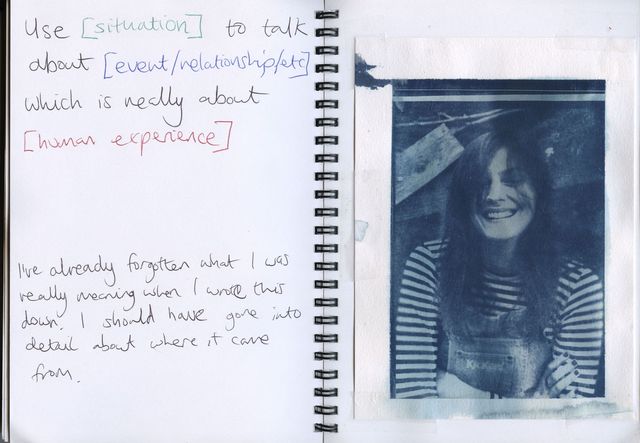 Use [situation] to talk
about [event/relationship/etc]
which is really about
[human experience]
I've already forgotten what I was
really meaning when I wrote this
down. I should have gone into
detail about where it came
from.